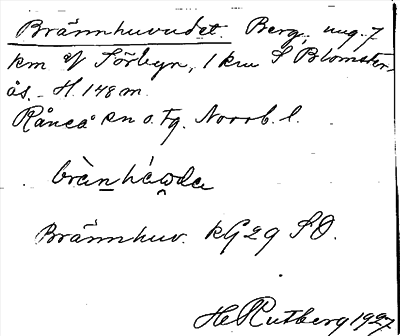 Brännhuvudet. Berg, ung. 7
km V Sörbyn, 1 km S Blomster-
ås. H. 148 m.
Råneå sn o. tg. Norrb. l.
bràn̲há̀w̥da
Brännhuv. kG 29 SO.
H. Rutberg 1927